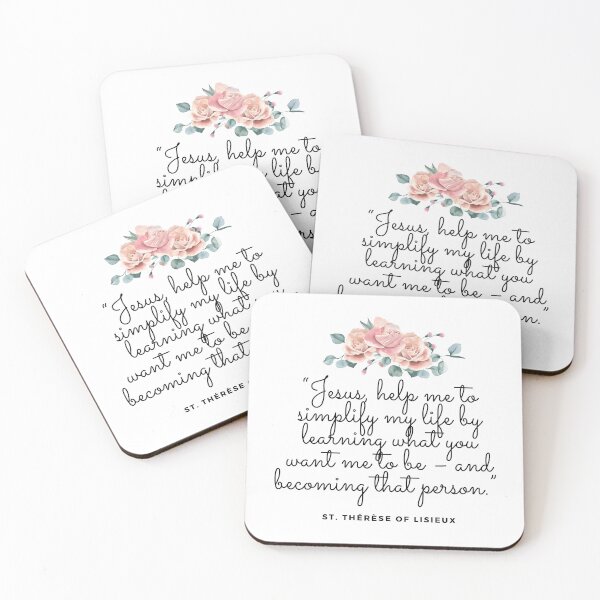 “Jesus, help me to
simplify my life
you
“Jesus, help me to
simplify my life by
learning what you
want me to be – and
“Jesus, help me to
simplify my life by
learning what
want me to be
becoming that
ST. THÉRÈSE
“Jesus, help me to
simplify my life by
learning what you
want me to be – and
becoming that person.”
ST. THÉRÈSE OF LISIEUX